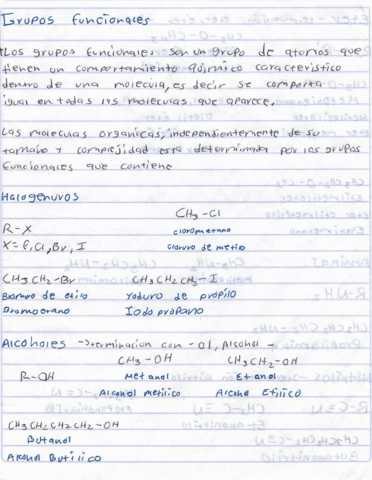 Grupos funcionales
Los grupos funcionales son un grupo de atomos que
tienen un comportamiento químico caracteristico
dentro de una molecula, es decir se comporta
igual en todas las moleculas que aparece.
Las moleculas organicas, independientemente de su
tamaño y complejidad esta determinada por los grupos
funcionales que contiene
Halogenuros
CH3-Cl
R-X clorometano
X=F,Cl,Br,I Cloruro de metilo
CH3CH2-Br CH3CH2CH2-I
Bromuro de etilo yoduro de propilo
Bromoetano Iodopropano
Alcoholes → terminacion con -ol, Alcohol -
CH3-OH CH3CH2-OH
R-OH Metanol Etanol
Alcohol metilico Alcohol Etilico
CH3CH2CH2CH2-OH
Butanol
Alcohol Butilico